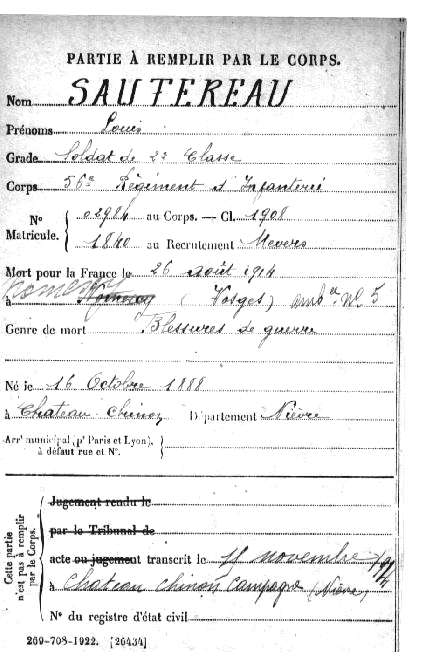 PARTIE À REMPLIR PAR LE CORPS.
Nom SAUTEREAU
Prénoms Louis
Grade Soldat de 2e Classe
Corps 56e Régiment d'Infanterie
N° Matricule. { 02984 au Corps. — Cl. 1908
1840 au Recrutement Nevers
Mort pour la France le 26 août 1914
à (Vosges) ambce N° 5
Genre de mort Blessures de guerre
Né le 16 Octobre 1888
à Chateau Chinon Département Nièvre
Arrt municipal (pr Paris et Lyon),
à défaut rue et N°.
Cette partie n'est pas à remplir par le Corps.
Jugement rendu le
par le Tribunal de
acte ou jugement transcrit le 11 novembre 1914
à Chateau Chinon Campagne (Nièvre)
N° du registre d'état civil
269-708-1922. [26434]